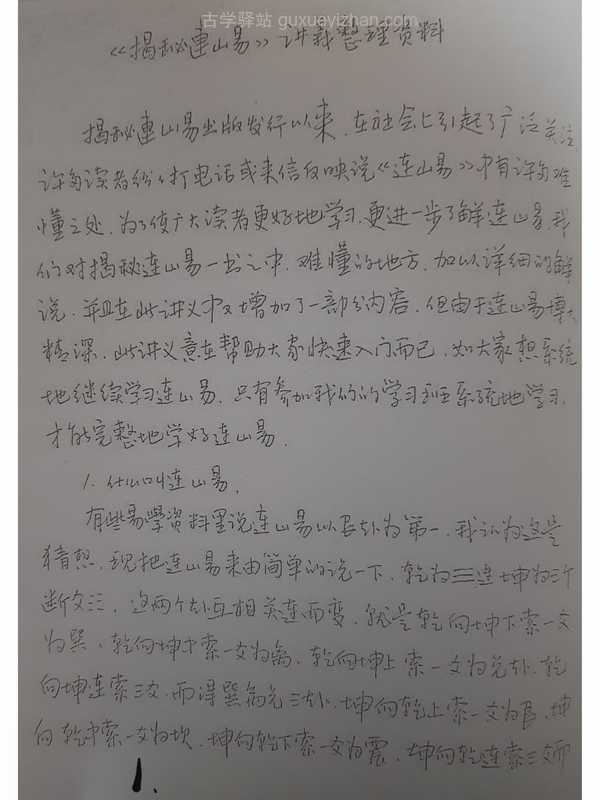 古学驿站 guxueyizhan.com
《揭秘连山易》讲义整理资料
揭秘连山易出版发行以来，在社会上引起了广泛关注
许多读者纷纷打电话或来信反映说《连山易》中有许多难
懂之处，为了使广大读者更好地学习，更进一步了解连山易，我
们对揭秘连山易一书之中，难懂的地方，加以详细的解
说，并且在此讲义中又增加了一部分内容，但由于连山易博大
精深，此讲义意在帮助大家快速入门而已，如大家想系统
地继续学习连山易，只有参加我们的学习班系统地学习，
才能完整地学好连山易．
1．什么叫连山易，
有些易学资料里说连山易以艮卦为第一，我认为这是
猜想，现把连山易来由简单的说一下，乾为三连坤为六个
断爻☷，这两个卦互相关连而变，就是乾向坤下索一爻
为巽，乾向坤中索一爻为离，乾向坤上索一爻为兑卦，乾
向坤连索三爻，而得巽离兑三卦．坤向乾上索一爻为艮，坤
向乾中索一爻为坎，坤向乾下索一爻为震，坤向乾连索三爻而
1．